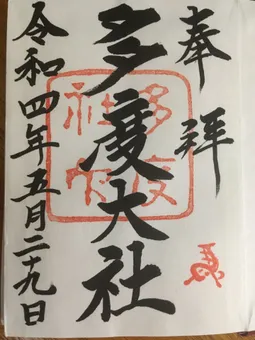 奉拝
多度大社
多度
大社
馬
令和四年五月二十九日